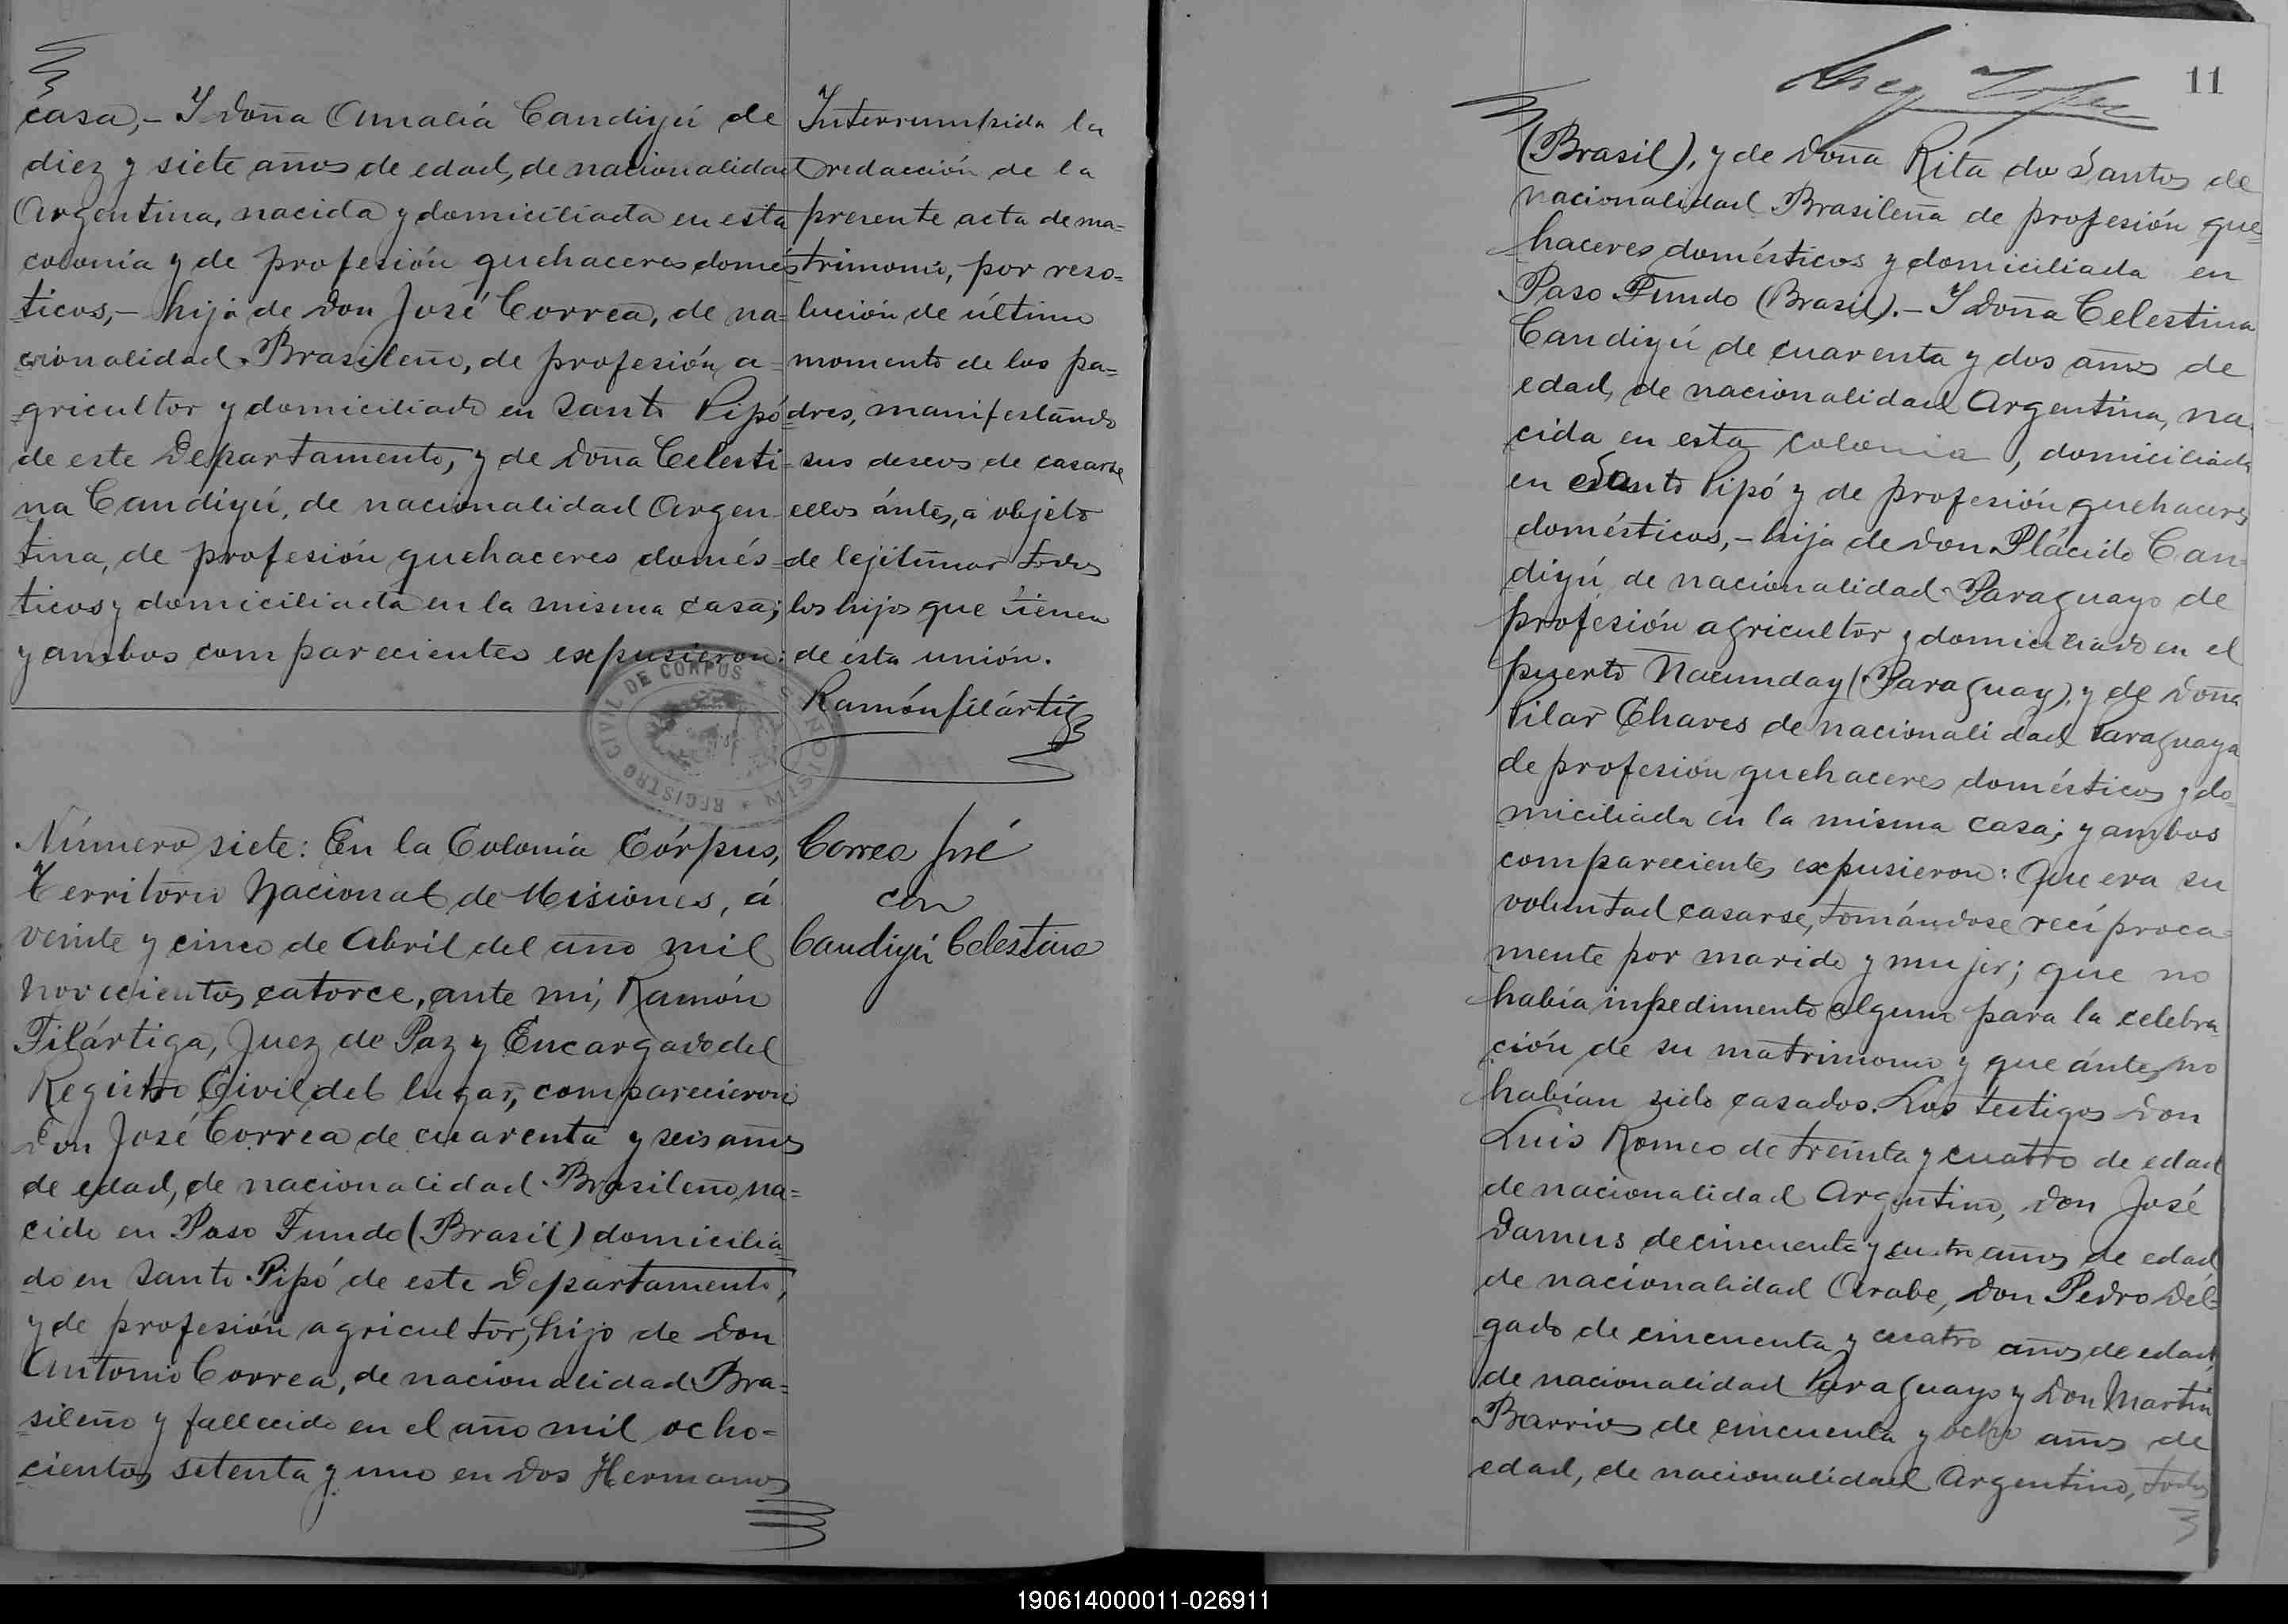 casa,- Y Doña Amalia Candiyú de
diez y siete años de edad, de nacionalidad
Argentina, nacida y domiciliada en esta
colonia y de profesión quehaceres domés
ticos,- hija de Don José Correa, de na-
cionalidad Brasileño, de profesión a-
gricultor y domiciliado en Santo Pipó
de este Departamento, y de Doña Celesti-
na Candiyú, de nacionalidad Argen
tina, de profesión quehaceres domés-
ticos y domiciliada en la misma casa;
y ambos comparecientes expusieron:
Interrumpida la
redacción de la
presente acta de ma=
trimonio, por reso=
lución de último
momento de los pa=
dres, manifestando
sus deseos de casarse
ellos ántes, a objeto
de lejitimar todos
los hijos que tienen
de esta unión.
Ramón Filártiga
REGISTRO CIVIL DE CORPUS * MISIONES *
Número siete: En la Colonia Córpus,
Territorio Nacional de Misiones, á
veinte y cinco de Abril del año mil
novecientos catorce, ante mí, Ramón
Filártiga, Juez de Paz y Encargado del
Registro Civil del lugar, comparecieron
Don José Correa de cuarenta y seis años
de edad, de nacionalidad Brasileño, na=
cido en Paso Fundo (Brasil) domicilia
do en Santo Pipó de este Departamento,
y de profesión agricultor, hijo de Don
Antonio Correa, de nacionalidad Bra=
sileño y fallecido en el año mil ocho=
cientos setenta y uno en Dos Hermanos
Correa José
con
Candiyú Celestina
11
(Brasil), y de Doña Rita dos Santos de
nacionalidad Brasileña de profesión que=
haceres domésticos y domiciliada en
Paso Fundo (Brasil).- Y Doña Celestina
Candiyú de cuarenta y dos años de
edad, de nacionalidad Argentina, na-
cida en esta colonia, domiciliada
en Santo Pipó y de profesión quehaceres
domésticos,- hija de Don Plácido Can-
diyú de nacionalidad Paraguayo de
profesión agricultor y domiciliado en el
puerto Nacunday (Paraguay), y de Doña
Pilar Chaves de nacionalidad Paraguaya
de profesión quehaceres domésticos y do-
miciliada en la misma casa; y ambos
comparecientes expusieron: Que era su
voluntad casarse, tomándose recíproca-
mente por marido y mujer; que no
había inpedimento alguno para la celebra
ción de su matrimonio y que ántes no
habían sido casados. Los testigos Don
Luis Romeo de treinta y cuatro de edad
de nacionalidad Argentino, Don José
Damus de cincuenta y cuatro años de edad
de nacionalidad Arabe, Don Pedro Del=
gado de cincuenta y cuatro años de edad,
de nacionalidad Paraguayo y Don Martin
Barrios de cincuenta y ocho años de
edad, de nacionalidad Argentino, todos
190614000011-026911